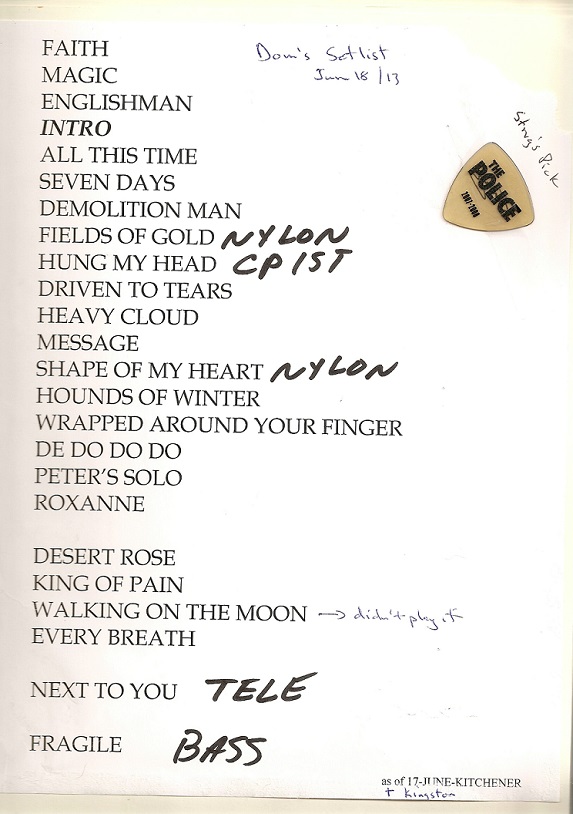 Dom's Setlist
Jun 18/13
Sting's Pick
THE
POLICE
2007-2008
FAITH
MAGIC
ENGLISHMAN
INTRO
ALL THIS TIME
SEVEN DAYS
DEMOLITION MAN
FIELDS OF GOLD NYLON
HUNG MY HEAD CP 1ST
DRIVEN TO TEARS
HEAVY CLOUD
MESSAGE
SHAPE OF MY HEART NYLON
HOUNDS OF WINTER
WRAPPED AROUND YOUR FINGER
DE DO DO DO
PETER'S SOLO
ROXANNE
DESERT ROSE
KING OF PAIN
WALKING ON THE MOON → didn't play it
EVERY BREATH
NEXT TO YOU TELE
FRAGILE BASS
as of 17-JUNE-KITCHENER
+ Kingston